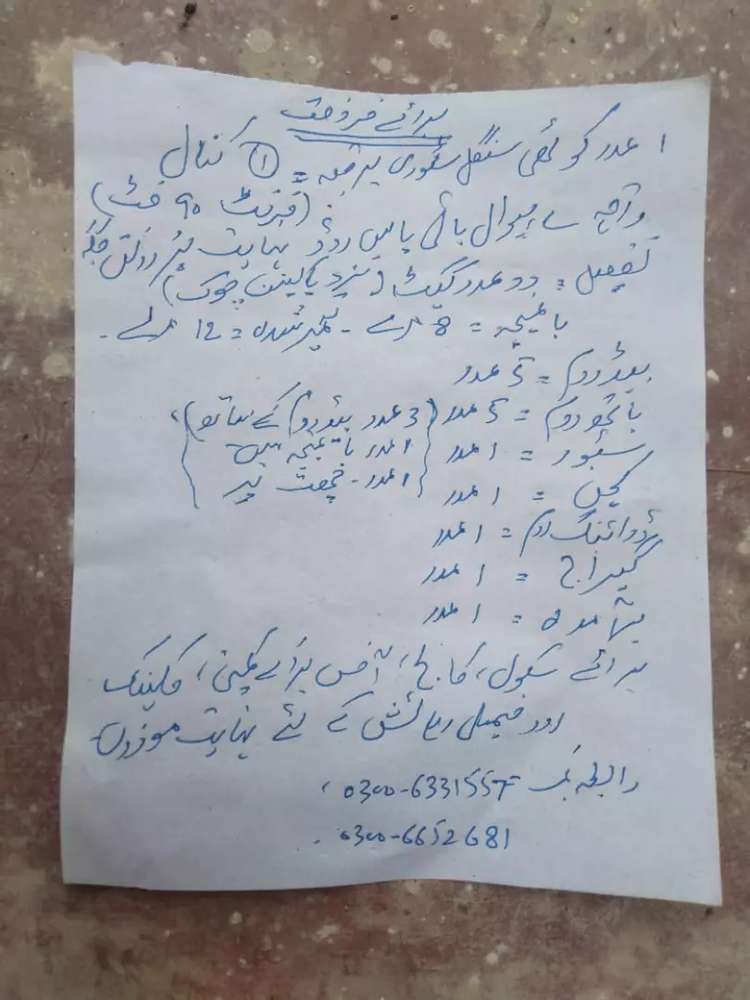 برائے فروخت
1 عدد کوٹھی سنگل سٹوری برقبہ = 1 کنال
(فرنٹ 90 فٹ)
واقع ساہیوال بائی پاس روڈ نہایت پُر رونق جگہ
تفصیل = دو عدد گیٹ (نزد پاکپتن چوک)
باغیچہ = 8 مرلے - تعمیر شدہ = 12 مرلے -
بیڈ روم = 5 عدد
باتھ روم = 5 عدد (3 عدد بیڈ روم کے ساتھ)
سٹور = 1 عدد 1 عدد باغیچہ میں
کچن = 1 عدد 1 عدد - چھت پر
ڈرائنگ روم = 1 عدد
گیراج = 1 عدد
برآمدہ = 1 عدد
برائے سکول، کالج، آفس برائے کمپنی، کلینک
اور فیملی رہائش کے لئے نہایت موزوں
رابطہ نمبر 0300-6331557،
0300-6652681